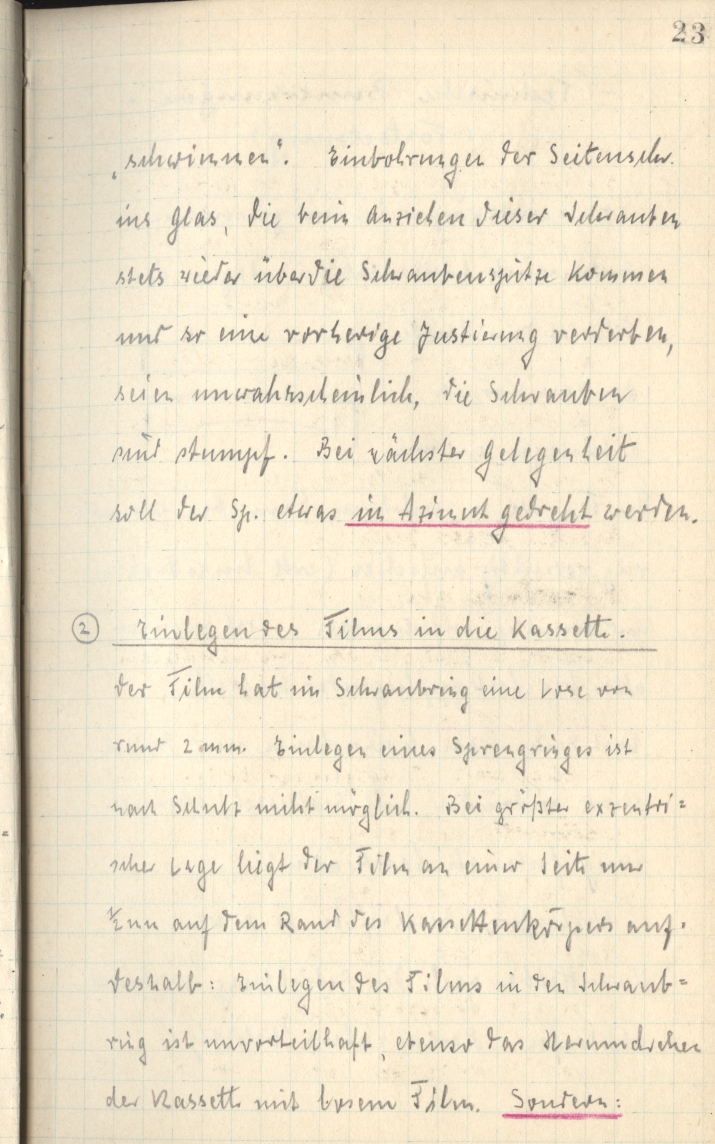 23
„schwimmen“. Einbohrungen der Seitenschr.
ins Glas, die beim Anziehen dieser Schrauben
stets wieder über die Schraubenspitze kommen
und so eine vorherige Justierung verderben,
seien unwahrscheinlich, die Schrauben
sind stumpf. Bei nächster Gelegenheit
soll der Sp. etwas im Azimut gedreht werden.
② Einlegen des Films in die Kassette.
Der Film hat im Schraubring eine Lose von
rund 2 mm. Einlegen eines Sprengringes ist
nach Schultz nicht möglich. Bei größter exzentri=
scher Lage liegt der Film an einer Seite nur
½mm auf dem Rand des Kassettenkörpers auf.
Deshalb: Einlegen des Films in den Schraub=
ring ist unvorteilhaft, ebenso das Herumdrehen
der Kassette mit losem Film. Sondern: